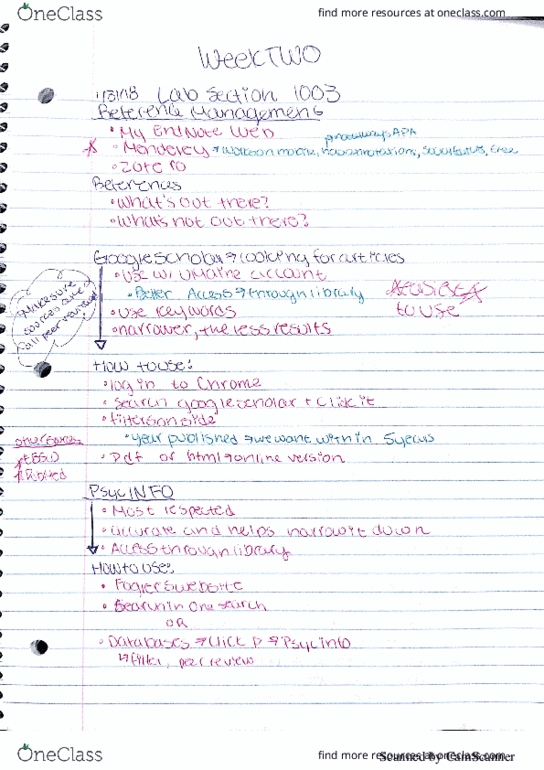 OneClass
find more resources at oneclass.com
WEEK TWO
1/31/18 Lab Section 1003
Reference Management
• My EndNote Web
• Mendeley → works on mobile,
• Zotero
References
• What's out there?
• What's not out there?
Google Scholar → looking for articles
• Use w/ UMaine account
• Better Access → through library
• Use keywords
• narrower, the less results
*EASIEST*
to use
Make sure
sources are
all peer reviewed!
How to use:
• log in to Chrome
• Search google scholar + Click it
• filters on side
• year published → we want within 5 years
• Pdf or html → online version
other sources
EBSCO
PubMed
PsycINFO
• Most respected
• accurate and helps narrow it down
• Access through library
How to use:
• Fogler's website
• Search in One search
OR
• Databases → Click P → Psycinfo
↳ filter, peer review
OneClass
find more resources at oneclass.com
Scanned by CamScanner